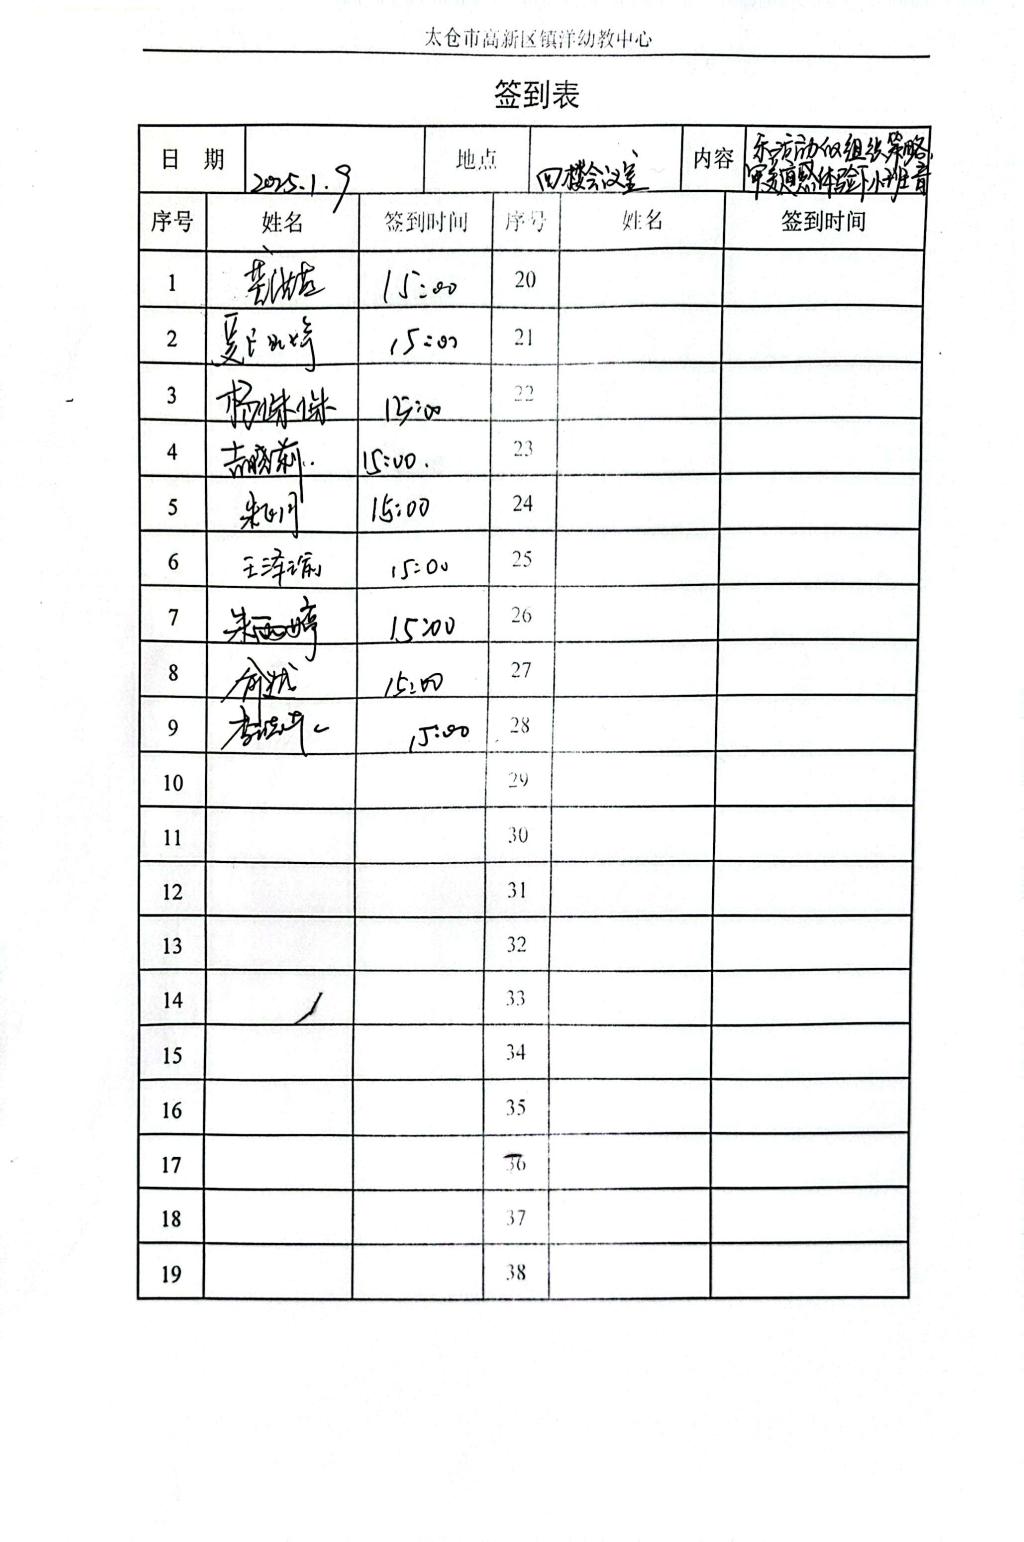 太仓市高新区镇洋幼教中心
签到表
日 期 2025.1.9 地点 四楼会议室 内容
乐活动的组织策略
体验下小班音
序号 姓名 签到时间 序号 姓名 签到时间
1 15:00 20
2 夏 15:00 21
3 杨姝姝 15:00 22
4 吉晓莉 15:00. 23
5 朱 15:00 24
6 王泽瑜 15:00 25
7 朱雨婷 15:00 26
8 俞 15:00 27
9 李 15:00 28
10 29
11 30
12 31
13 32
14 33
15 34
16 35
17 36
18 37
19 38